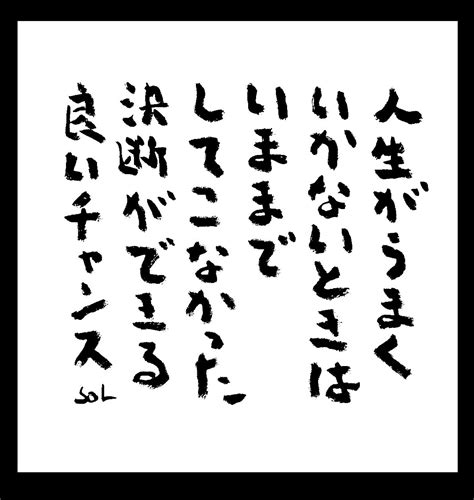 人生がうまく
いかないときは
いままで
してこなかった
決断ができる
良いチャンス
SOL